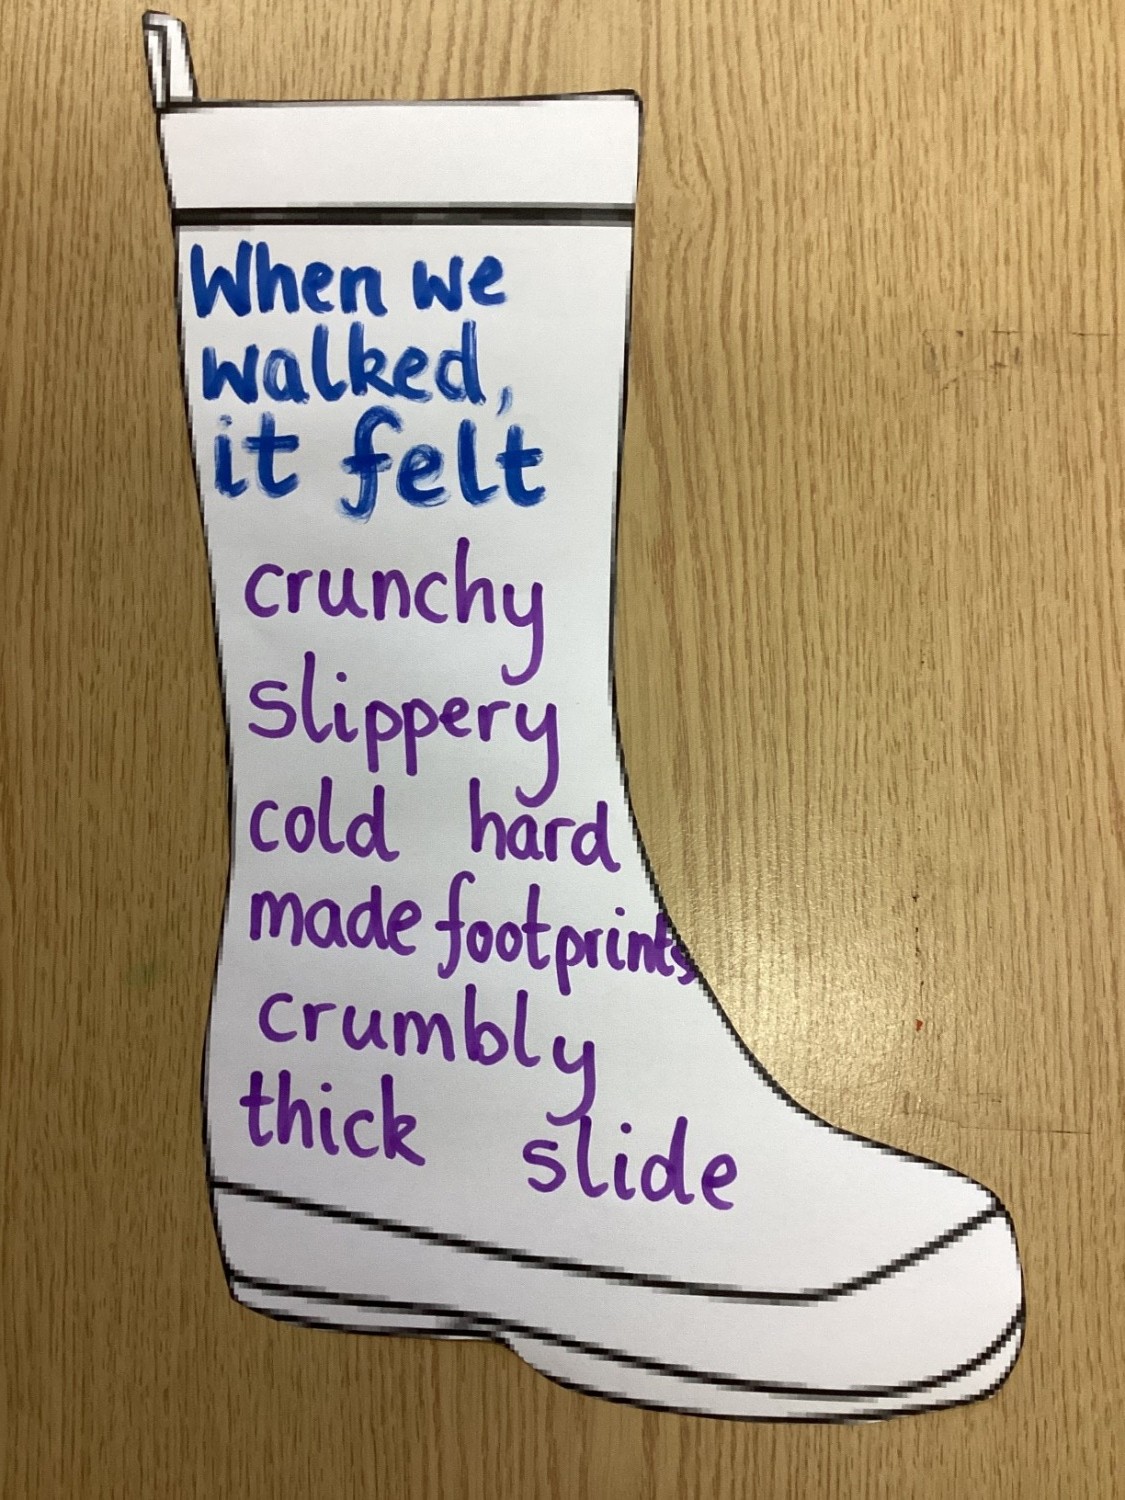 When we
walked,
it felt
crunchy
slippery
cold hard
made footprints
crumbly
thick slide